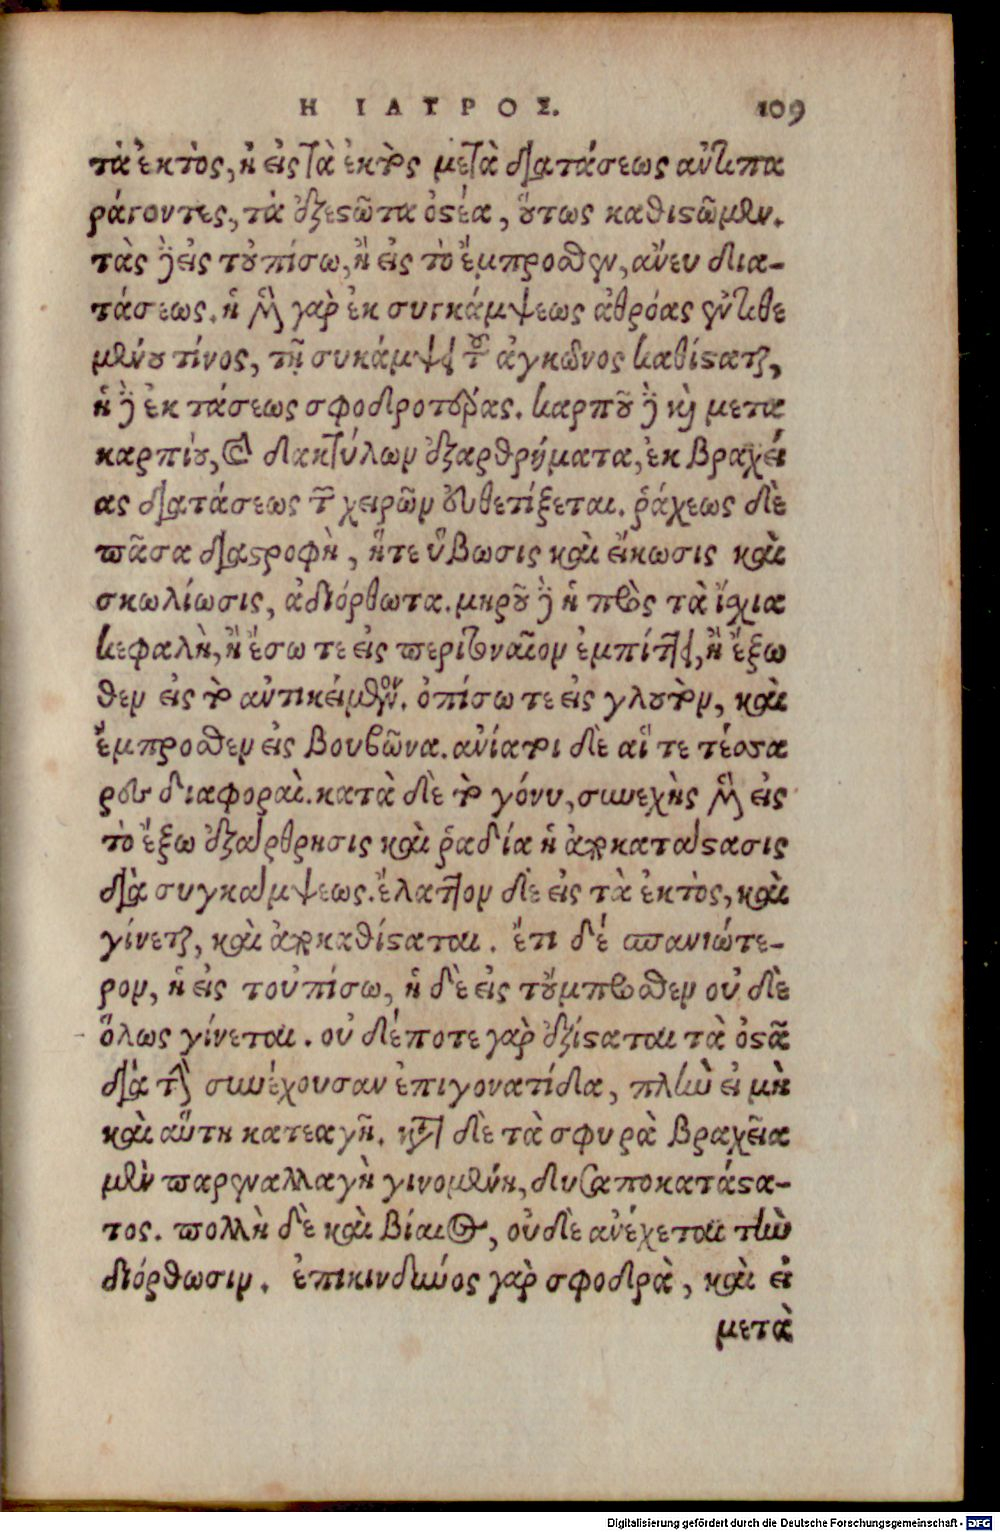 Η ΙΑΤΡΟΣ. 109
τὰ ἐκτὸς, ἢ εἰς τὰ ἐκτὸς μετὰ διατάσεως ἀντιπα
ράγοντες, τὰ ἐξεστῶτα ὀστέα, οὕτως καθιστῶμεν.
τὰς δὲ εἰς τοὐπίσω, ἢ εἰς τὸ ἔμπροσθεν, ἄνευ δια-
τάσεως. ἡ μὲν γὰρ ἐκ συγκάμψεως ἀθρόας ἐντιθε
μένου τίνος, τῇ συκάμψει τοῦ ἀγκῶνος καθίσαται,
ἡ δὲ ἐκ τάσεως σφοδροτέρας. καρποῦ δὲ καὶ μετα
καρπίου, καὶ δακτύλων ἐξαρθρήματα, ἐκ βραχεί
ας διατάσεως τῶν χειρῶν εὐθετίξεται. ῥάχεως δὲ
πᾶσα διαστροφὴ, ἥτε ὕβωσις καὶ εἴκωσις καὶ
σκωλίωσις, ἀδιόρθωτα. μηροῦ δὲ ἡ πρὸς τὰ ἴχια
κεφαλὴ, ἢ ἔσω τε εἰς περιτοναῖον ἐμπίπτει, ἢ ἔξω
θεν εἰς τὸ ἀντικείμενον. ὀπίσω τε εἰς γλουτὸν, καὶ
ἔμπροσθεν εἰς βουβῶνα. ἀνίατοι δὲ αἵ τε τέσσα
ρες διαφοραὶ. κατὰ δὲ τὸ γόνυ, συνεχὴς μὲν εἰς
τὸ ἔξω ἐξάρθρησις καὶ ῥαδία ἡ ἀποκατάστασις
διὰ συγκάμψεως. ἔλαττον δὲ εἰς τὰ ἐκτὸς, καὶ
γίνεται, καὶ ἀποκαθίσταται. ἔτι δέ σπανιώτε-
ρον, ἡ εἰς τοὐπίσω, ἡ δὲ εἰς τοὔμπροσθεν οὐ δὲ
ὅλως γίνεται. οὐ δέποτε γὰρ ἐξίσταται τὰ ὀστᾶ
διὰ τὴν συνέχουσαν ἐπιγονατίδια, πλὴν εἰ μὴ
καὶ αὕτη κατεαγῆ. κατὰ δὲ τὰ σφυρὰ βραχεῖα
μὲν παρεναλλαγὴ γινομένη, δυσαποκατάστα-
τος. πολλὴ δὲ καὶ βίαιος, οὐδὲ ἀνέχεται τὴν
διόρθωσιν. ἐπικινδύνως γὰρ σφοδρὰ, καὶ εἰ
μετὰ
Digitalisierung gefördert durch die Deutsche Forschungsgemeinschaft - DFG